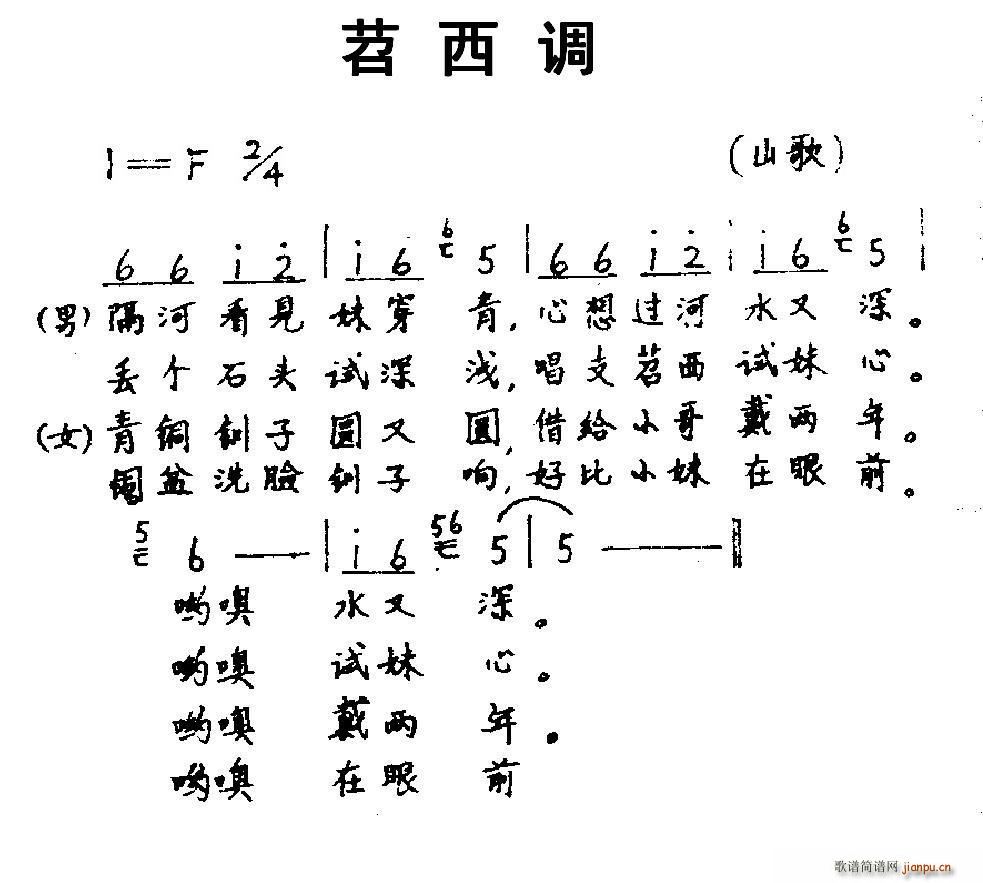 苕西调
1==F 2/4 (山歌)
6 6 i 2̇ | i 6 6 5 | 6 6 i 2̇ | i 6 6 5 |
(男) 隔河看见妹穿青,心想过河水又深。
丢个石头试深浅,唱支苕西试妹心。
(女) 青铜钏子圆又圆,借给小哥戴两年。
盆洗脸钏子响,好比小妹在眼前。
5 6 — | i 6 56 5 | 5 — ‖
哟噢 水又深。
哟噢 试妹心。
哟噢 戴两年。
哟噢 在眼前
歌谱简谱网 jianpu.cn